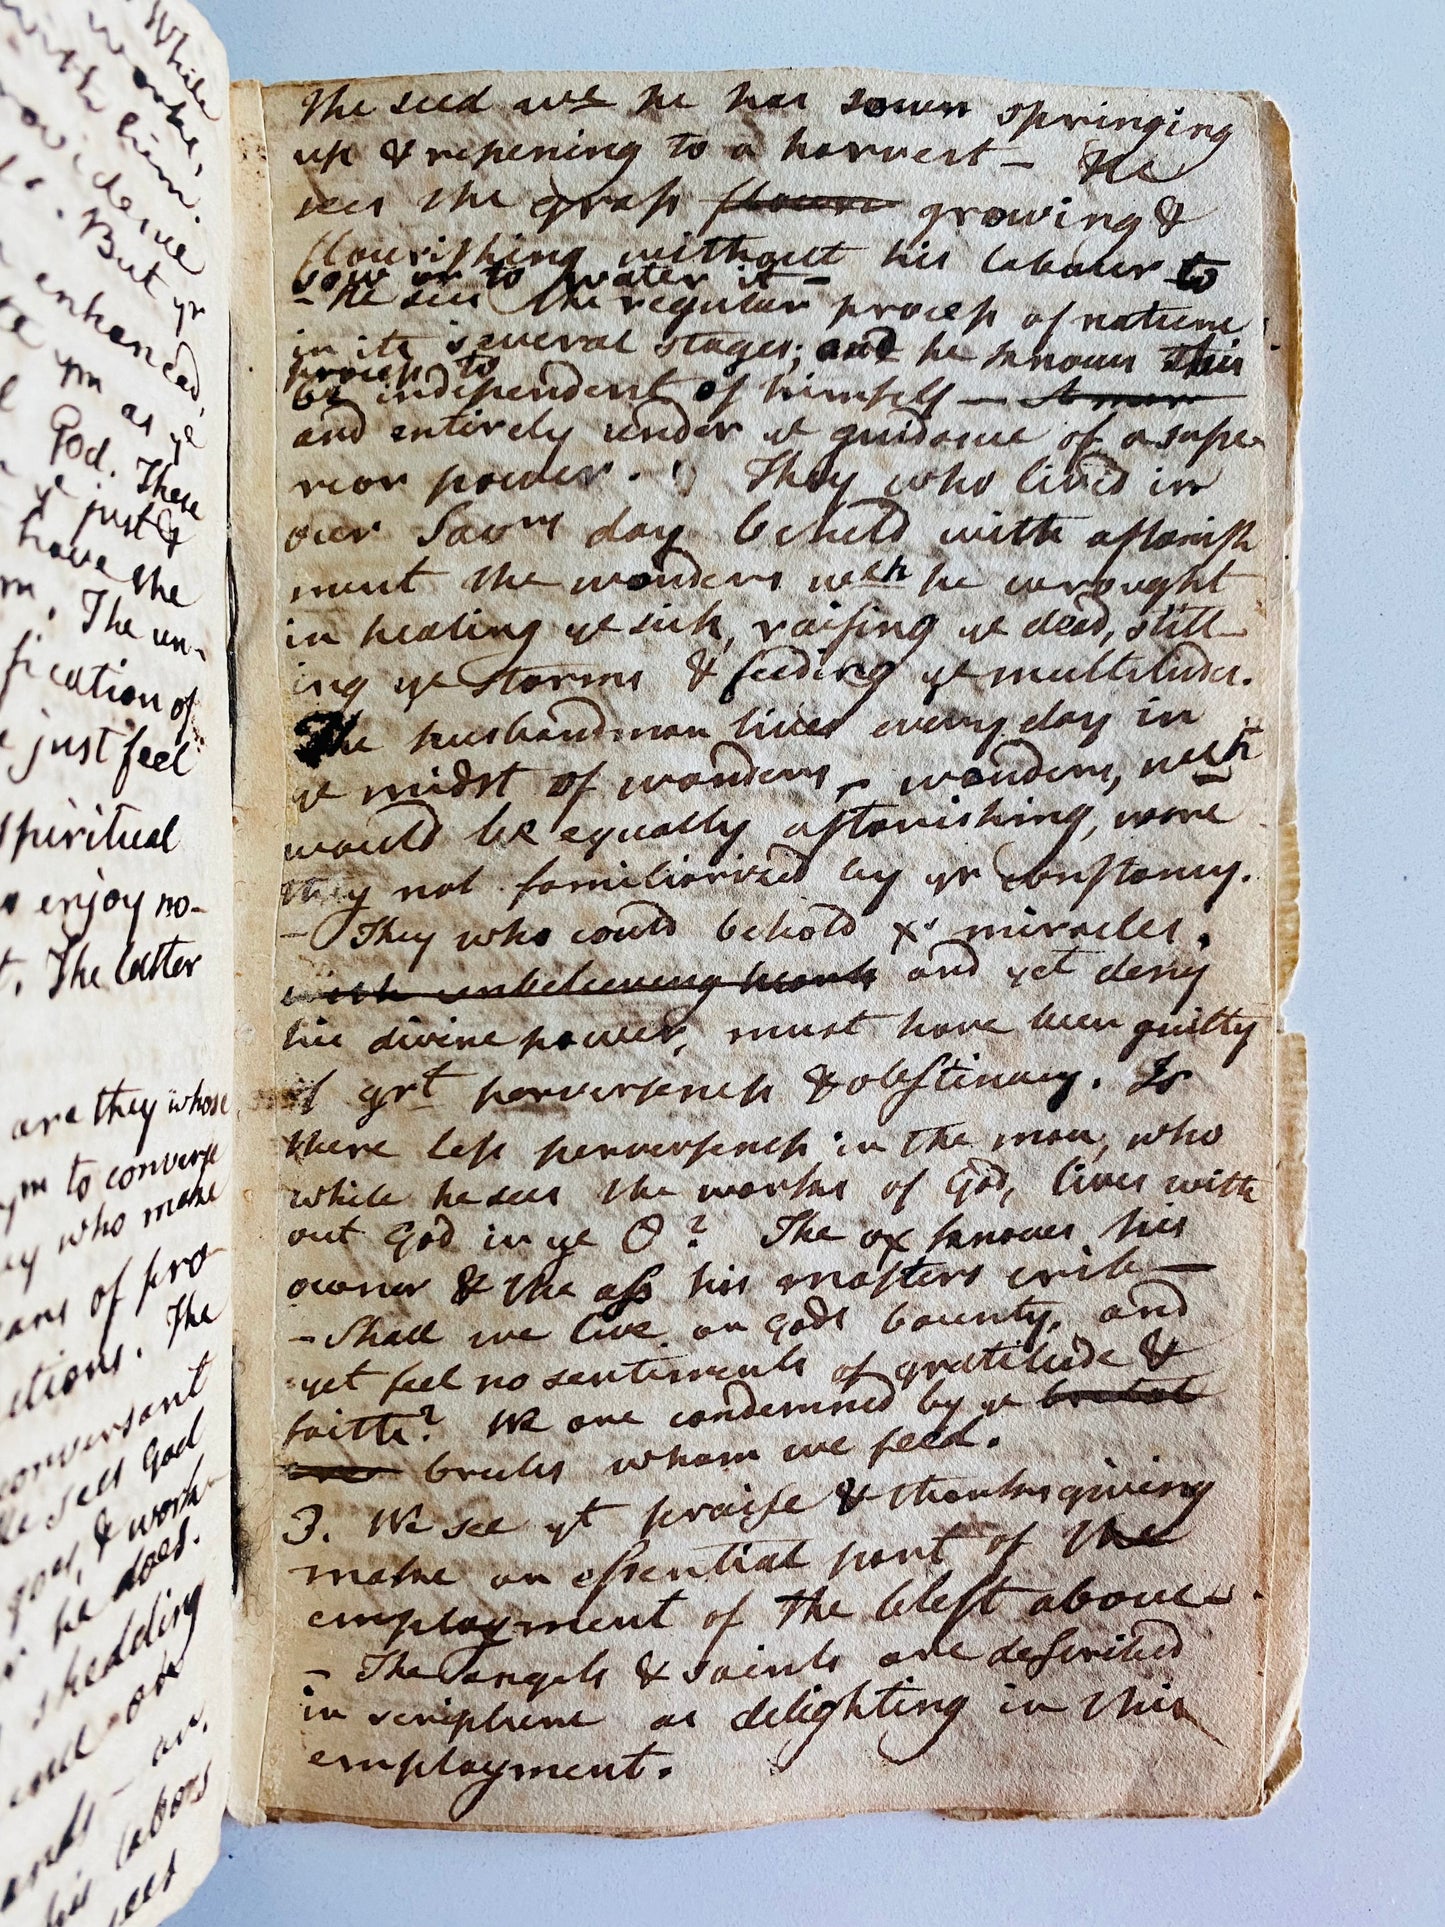 While
works,
with him.
rovidence
. But yr
enhanced,
ym as ye
God. These
ye just &
have the
m. The un-
fication of
e just feel
spiritual
enjoy no-
t. The latter
are they whose
ym to converse
ey who make
eans of pro-
ctions. The
conversant
He sees God
goes, & work
he does.
shedding
and on
an.
his labors
The seed wh he has sown springing
up & ripening to a harvest – He
sees the grass flower growing &
flourishing without his labour to
sow or to water it –
– He sees the regular process of nature
in its several stages; and he knows this
process to
be independent of himself –
and entirely under ye guidance of a supe-
rior power. They who lived in
our Savrs day beheld with astonish
ment the wonders wch he wrought
in healing ye sick, raising ye dead, still-
ing ye storms & feeding ye multitudes.
The husbandman lives every day in
ye midst of wonders, wonders, wch
would be equally astonishing, were
they not familiarized by yr constancy.
– They who could behold Xs miracles,
with unbelieving hearts and yet deny
his divine power, must have been guilty
of grt perverseness & obstinacy. Is
there less perverseness in the man, who
while he sees the works of God, lives with
out God in ye O? The ox knows his
owner & the ass his masters crib –
– Shall we live on Gods bounty, and
yet feel no sentiments of gratitude &
faith? We are condemned by ye brutal
over brutes whom we feed.
3. We see yt praise & thanksgiving
make an essential part of the
employment of the blest above –
– The angels & saints are described
in scripture as delighting in this
employment.